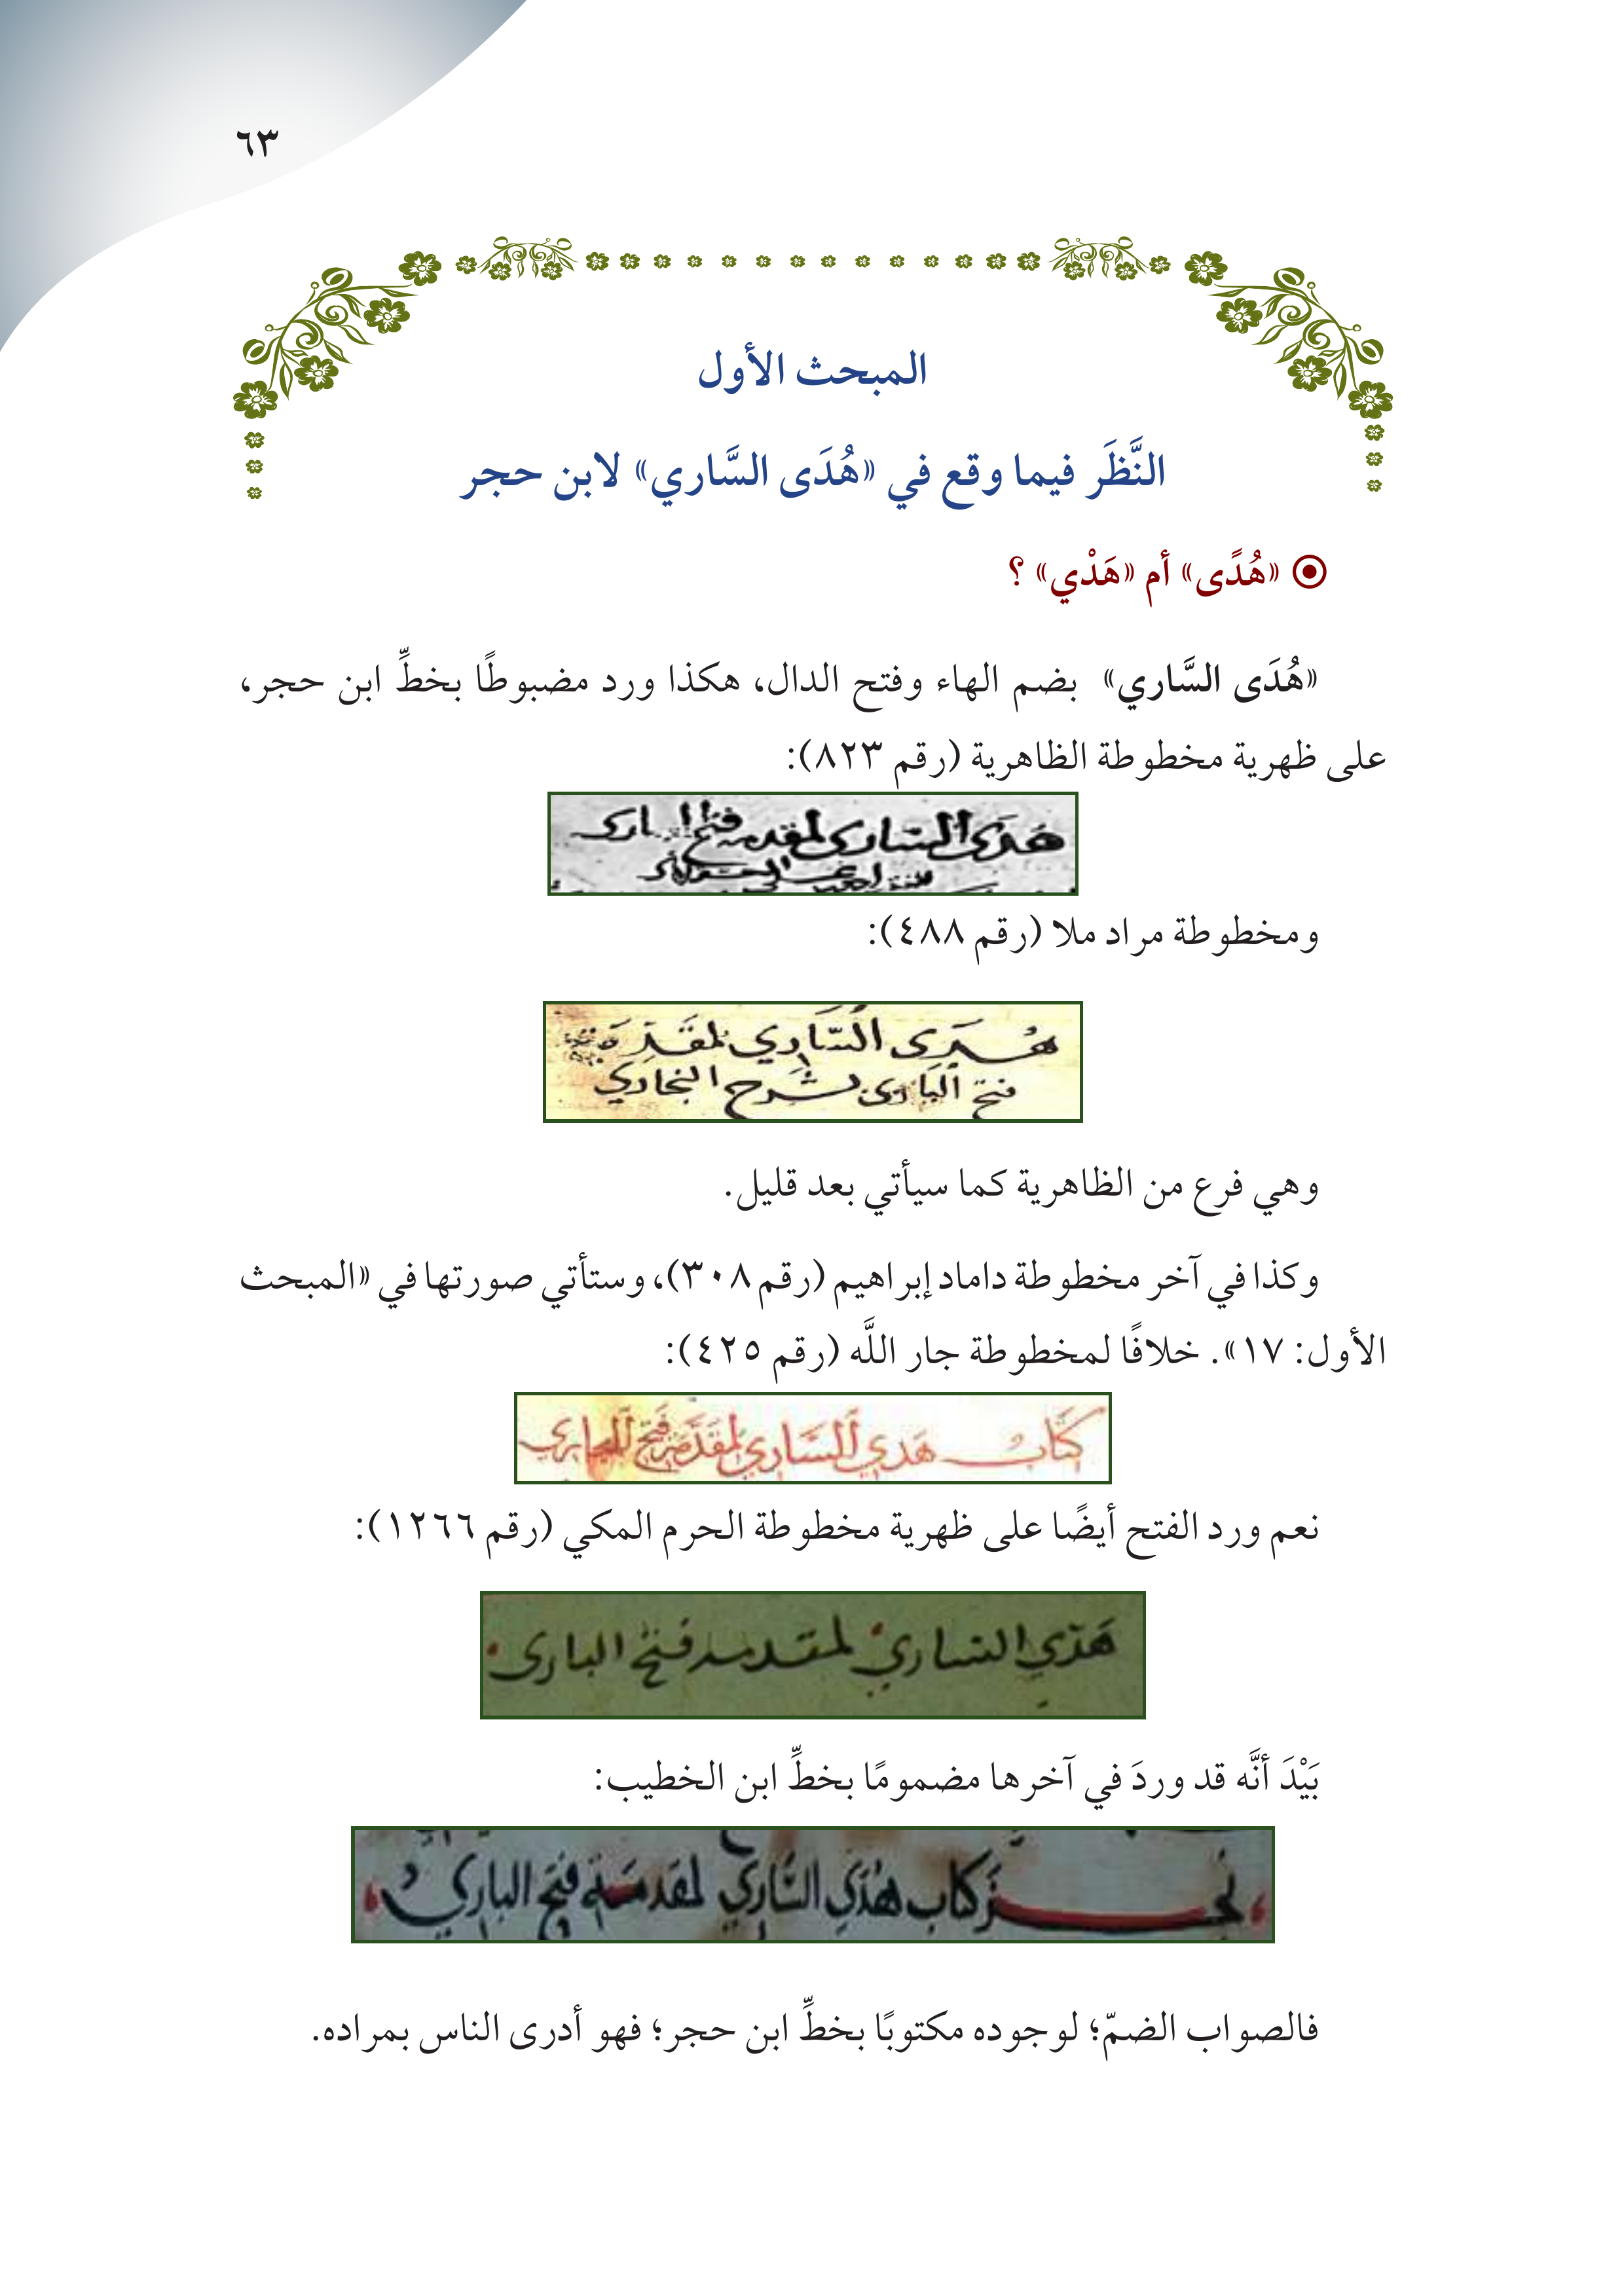 ٦٣
المبحث الأول
النَّظَر فيما وقع في «هُدَى السَّاري» لابن حجر
«هُدًى» أم «هَدْي» ؟
«هُدَى السَّاري» بضم الهاء وفتح الدال، هكذا ورد مضبوطًا بخطِّ ابن حجر،
على ظهرية مخطوطة الظاهرية (رقم ٨٢٣):
هدى الساري لمقدمة فتح الباري
ومخطوطة مراد ملا (رقم ٤٨٨):
هُدَى السَّارِي لمقَدِّمَة
فتح البَاري لشرح البخاري
وهي فرع من الظاهرية كما سيأتي بعد قليل.
وكذا في آخر مخطوطة داماد إبراهيم (رقم ٣٠٨)، وستأتي صورتها في «المبحث
الأول: ١٧». خلافًا لمخطوطة جار اللَّه (رقم ٤٢٥):
كتَاب هَدي السَّاري لمقَدَّمة فَتح البَاري
نعم ورد الفتح أيضًا على ظهرية مخطوطة الحرم المكي (رقم ١٢٦٦):
هَدْي الساري لمقدمة فتح الباري
بَيْدَ أنَّه قد وردَ في آخرها مضمومًا بخطِّ ابن الخطيب:
نجز كتاب هُدَي السَّاري لمقدمة فتح الباري
فالصواب الضمّ؛ لوجوده مكتوبًا بخطِّ ابن حجر؛ فهو أدرى الناس بمراده.